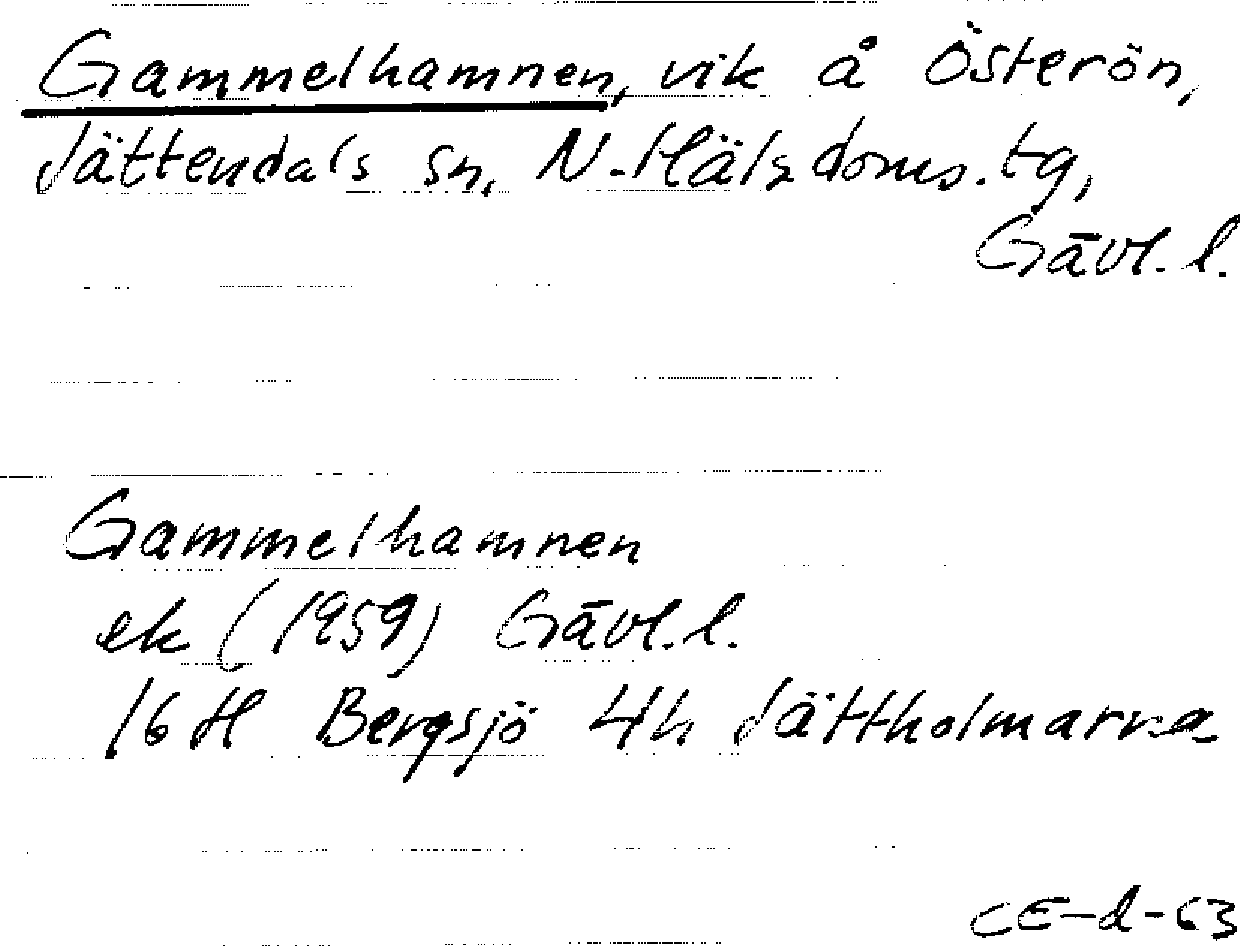 Gammelhamnen, vik å Österön,
Jättendals sn, N. Häls doms. tg,
Gävl. l.
Gammelhamnen
ek (1959) Gävl. l.
16 H Bergsjö 4h Jättholmarna
CE-d-63